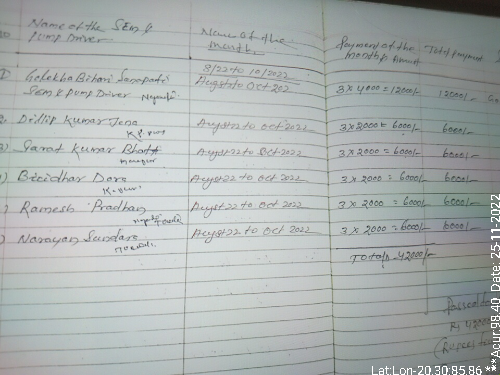 Name of the SEM &
Pump Driver
Name of the
month.
Payment of the
monthly Amount
Total payment
8/22 to 10/2022
Golekha Bihari Senapati
SEM & Pump Driver
August to Oct 2022
3 x 4000 = 12000/-
12000/-
Dillip Kumar Jena
August 22 to Oct 2022
3 x 2000 = 6000/-
6000/-
Sarat Kumar Bhatt
August 22 to Oct 2022
3 x 2000 = 6000/-
6000/-
Dore
August 22 to Oct 2022
3 x 2000 = 6000/-
6000/-
Ramesh Pradhan
August 22 to Oct 2022
3 x 2000 = 6000/-
6000/-
Narayan
August 22 to Oct 2022
3 x 2000 = 6000/-
6000/-
Total - 42000/-
Passed
Rs 42000
(Rupees
Lat:Lon-20.30:85.86 ***Acur:98.40 Date: 25-11-2022